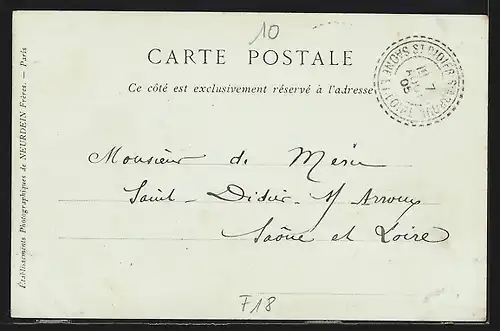 10
CARTE POSTALE
Ce côté est exclusivement réservé à l'adresse
ST DIDIER S ARROUX
7
AOU
05
Monsieur de
Saint-Didier-s/ Arroux
Saône et Loire
F18
Établissements Photographiques de NEURDEIN Frères. — Paris